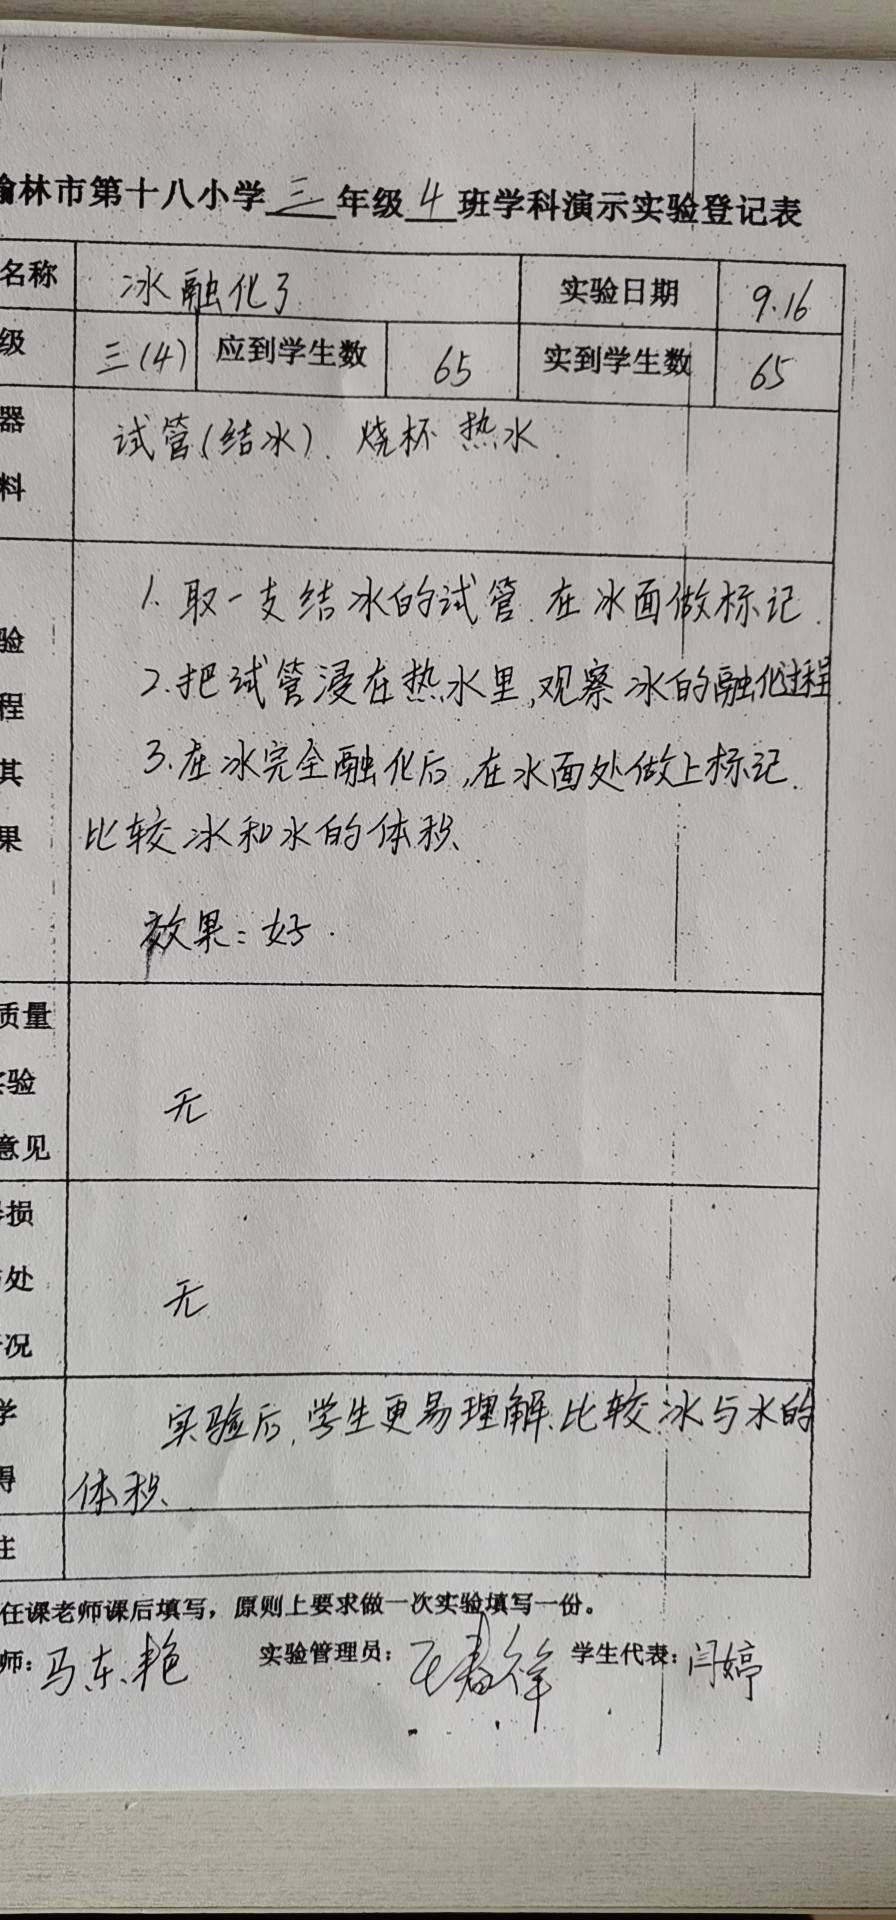 榆林市第十八小学三年级4班学科演示实验登记表
名称 冰融化了 实验日期 9.16
级 三(4) 应到学生数 65 实到学生数 65
器
料
试管(结冰)、烧杯 热水.
验
程
其
果
1. 取一支结冰的试管.在冰面做标记.
2.把试管浸在热水里,观察冰的融化过程
3.在冰完全融化后,在水面处做上标记.
比较冰和水的体积、
效果:好.
质量
实验
意见
无
损
处
况
无
学
得
实验后,学生更易理解.比较冰与水的
体积、
注
任课老师课后填写，原则上要求做一次实验填写一份。
师：马东艳 实验管理员： 学生代表：闫婷